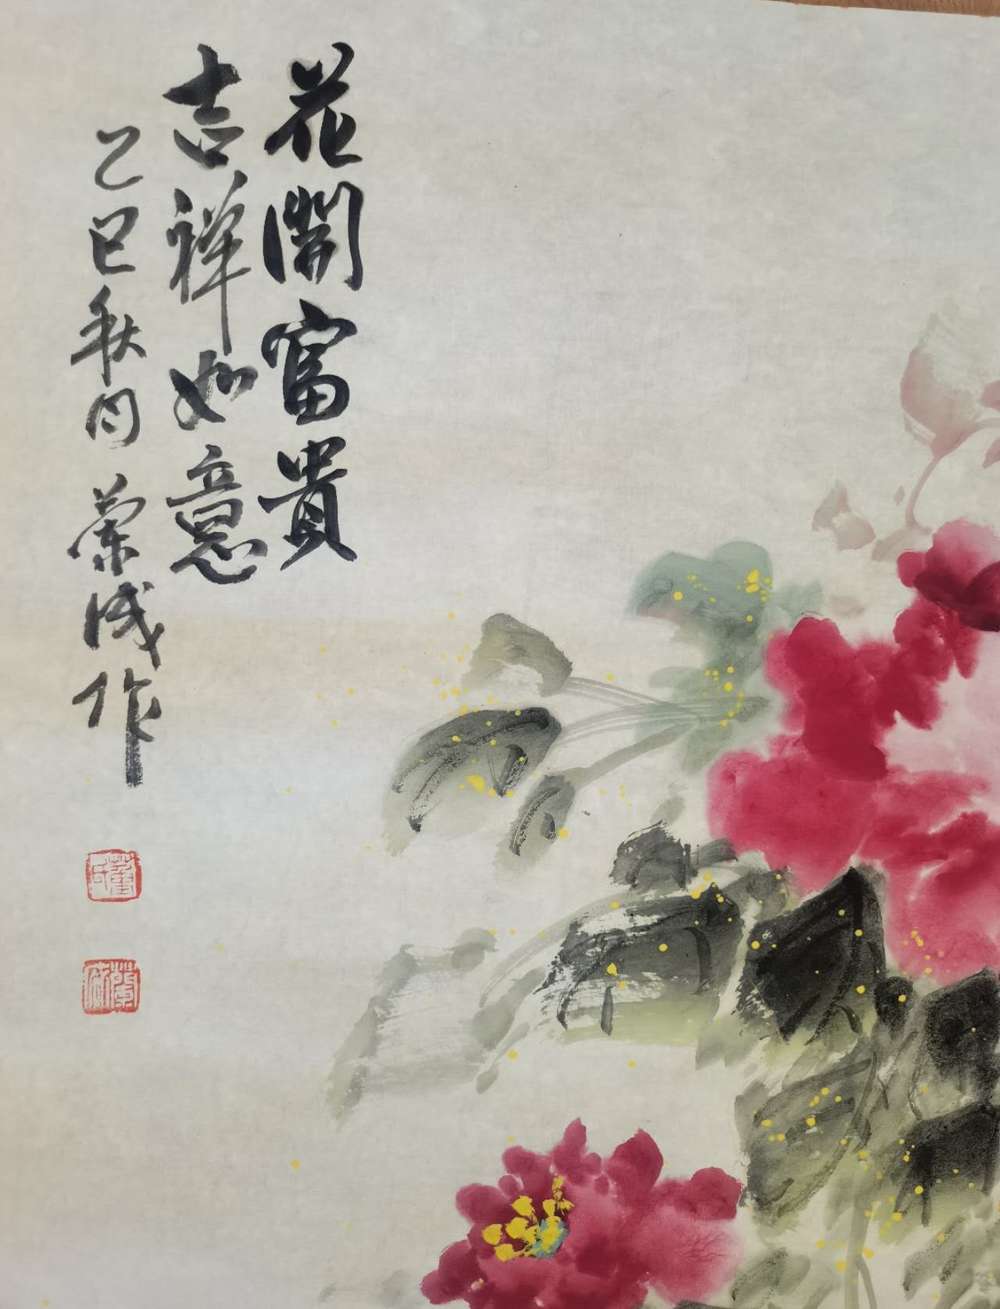 花開富貴
吉祥如意
乙巳秋月蘭作